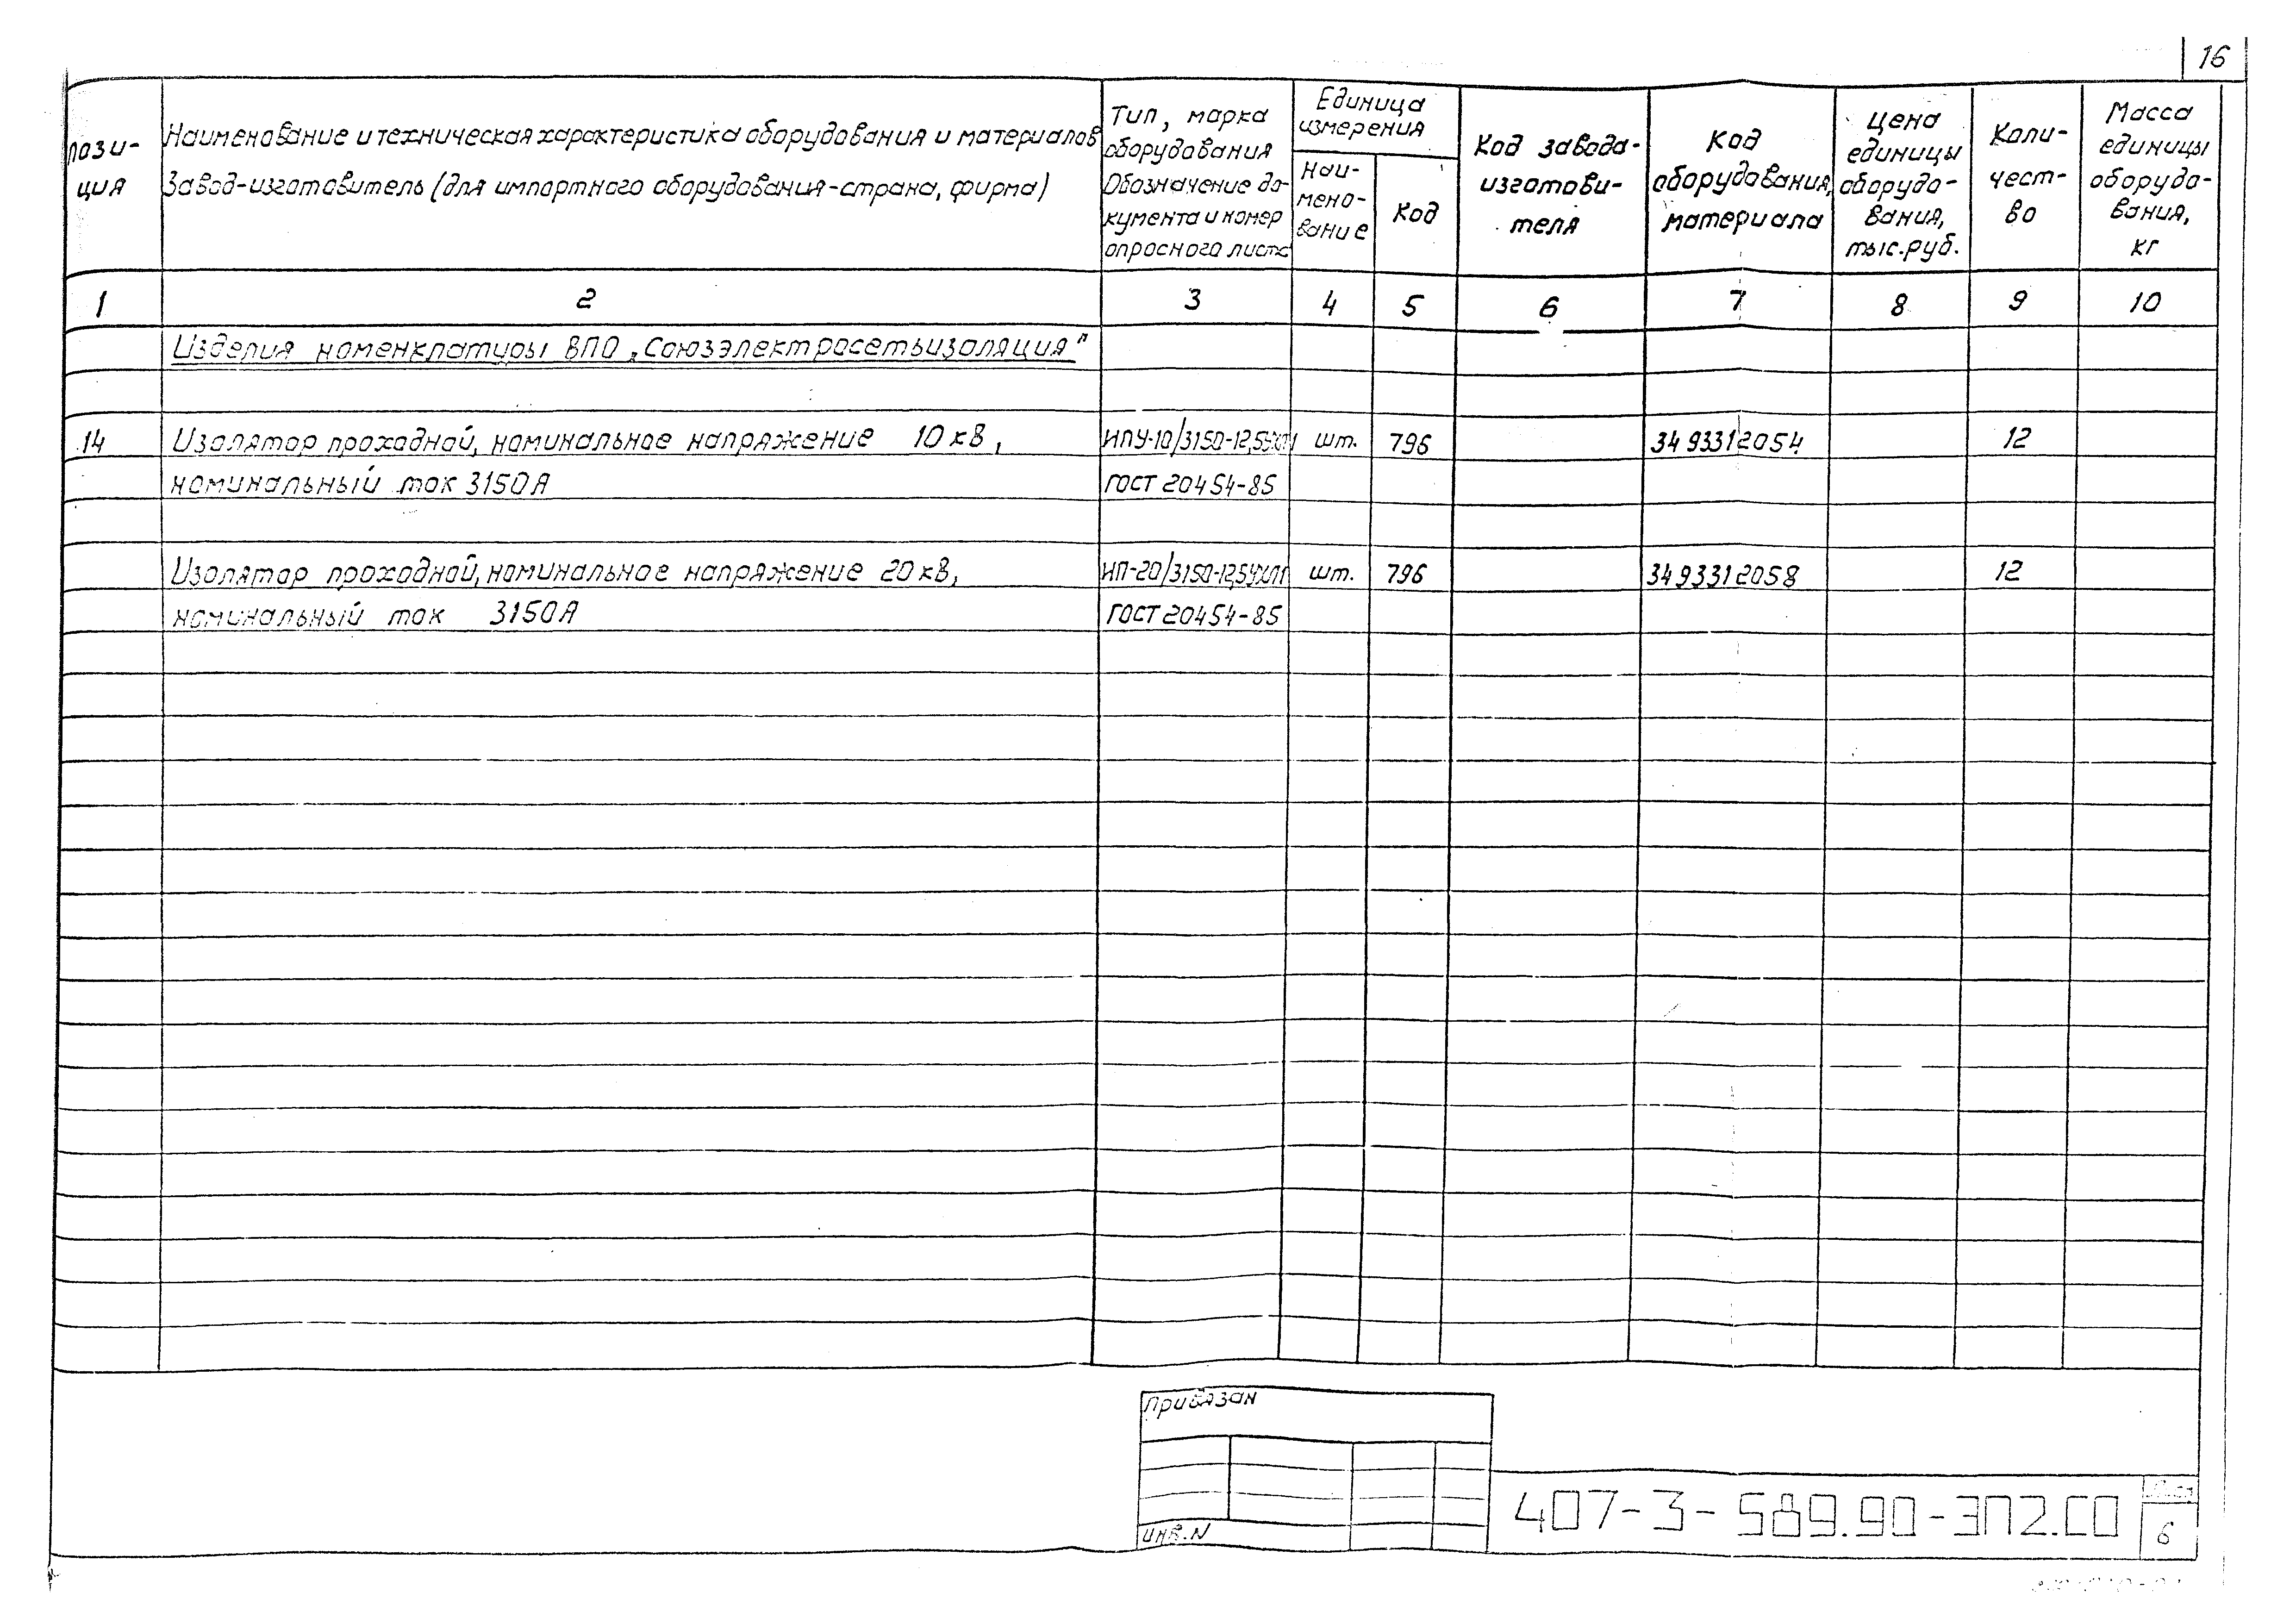 16
Пози-
ция
Наименование и техническая характеристика оборудования и материалов
Завод-изготовитель (для импортного оборудования-страна, фирма)
Тип, марка
оборудования
Обозначение до-
кумента и номер
опросного листа
Единица
измерения
Наи-
мено-
вание
Код
Код завода-
изготови-
теля
Код
оборудования,
материала
Цена
единицы
оборудо-
вания,
тыс.руб.
Коли-
чест-
во
Масса
единицы
оборудо-
вания,
кг
1 2 3 4 5 6 7 8 9 10
Изделия номенклатуры ВПО „Союзэлектросетьизоляция"
14 Изолятор проходной, номинальное напряжение 10 кВ, ИПУ-10/3150-12,5УХЛ1 шт. 796 3493312054 12
номинальный ток 3150А ГОСТ 20454-85
Изолятор проходной, номинальное напряжение 20 кВ, ИП-20/3150-12,5УХЛ1 шт. 796 3493312058 12
номинальный ток 3150А ГОСТ 20454-85
Привязан
инв.N
407-3-589.90-ЭП2.СО
Лист
6